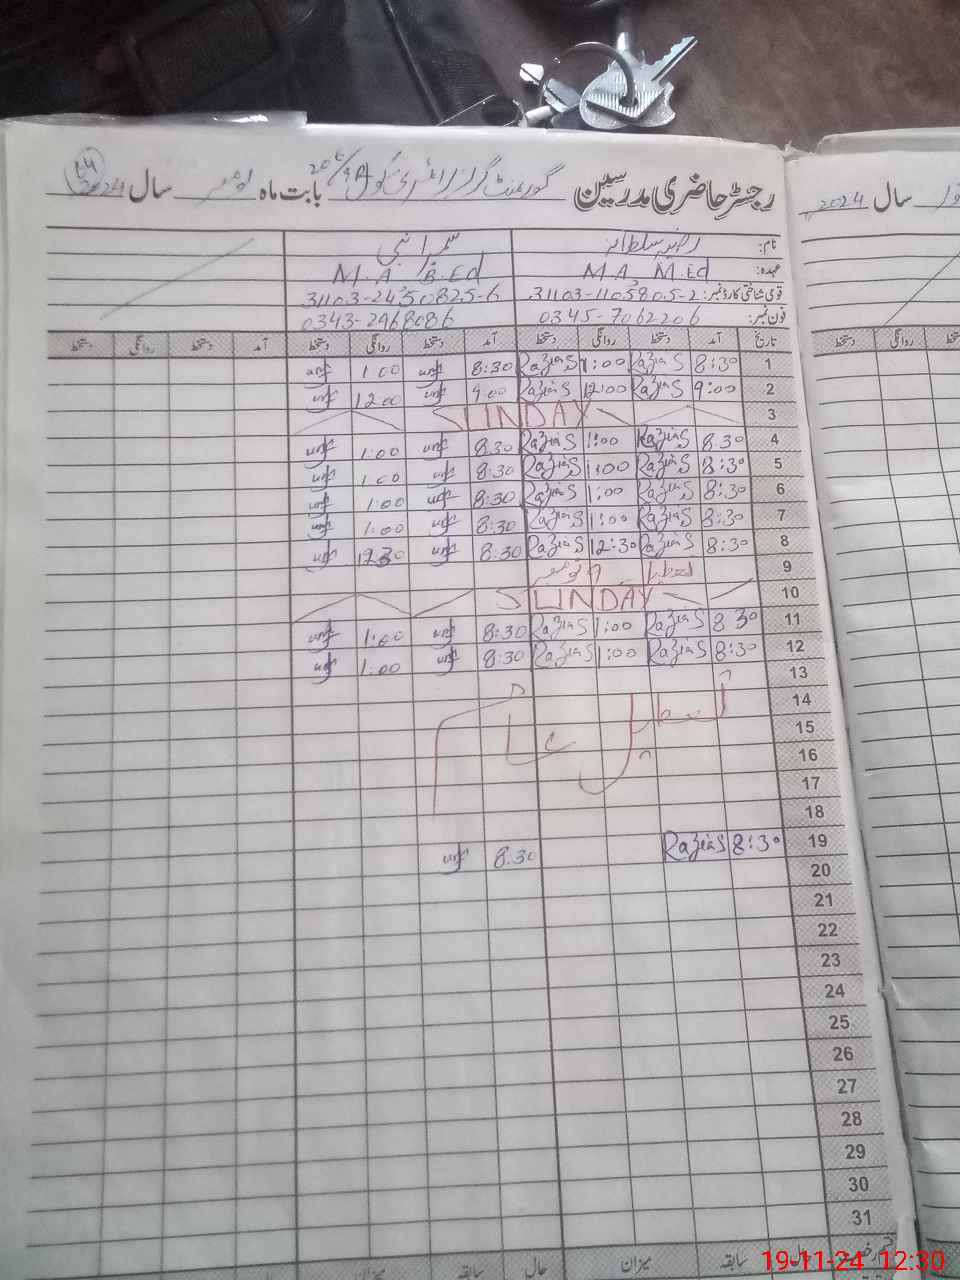 رجسٹر حاضری مدرسین گورنمنٹ گرلز بابت ماہ نومبر سال 2024
سال 2024
نام: رضیہ سلطانہ
عہدہ: M.A, M.Ed M.A, B.Ed
قومی شناختی کارڈ نمبر: 31103-1105805-2 31103-2450825-6
فون نمبر: 0345-7062206 0343-2968086
تاریخ آمد دستخط روانگی دستخط آمد دستخط روانگی دستخط آمد دستخط روانگی دستخط
1 8:30 RaziaS 1:00 RaziaS 8:30 1:00
2 9:00 RaziaS 12:00 RaziaS 9:00 12:00
3 SUNDAY
4 8:30 RaziaS 1:00 RaziaS 8:30 1:00
5 8:30 RaziaS 1:00 RaziaS 8:30 1:00
6 8:30 RaziaS 1:00 RaziaS 8:30 1:00
7 8:30 RaziaS 1:00 RaziaS 8:30 1:00
8 8:30 RaziaS 12:30 RaziaS 8:30 12:30
9 تعطیل 9 نومبر
10 SUNDAY
11 8:30 RaziaS 1:00 RaziaS 8:30 1:00
12 8:30 RaziaS 1:00 RaziaS 8:30 1:00
13
14
15
16
17
18
19 8:30 RaziaS 8:30
20
21
22
23
24
25
26
27
28
29
30
31
سابقہ میزان حال سابقہ میزان
19-11-24 12:30